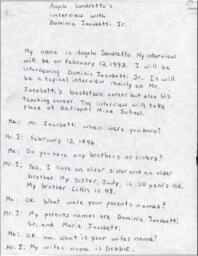 Angela Sandretto's
interview with
Dominic Jacobetti Jr.
My name is Angela Sandretto. My interview
will be on February 12, 1993. I will be
interviewing Dominic Jacobetti Jr. It will
be a topical interview mainly on Mr.
Jacobetti's basketball career but also his
teaching career. The interview will take
place at National Mine School.
Me: Mr. Jacobetti when were you born?
Mr. J: February 15, 1946.
Me: Do you have any brothers or sisters?
Mr. J: Yes, I have an older sister and an older
brother. My sister, Judy, is 50 years old.
My brother Collin is 48.
Me: OK. What were your parents names?
Mr. J: My parents names are Dominic Jacobetti
Sr. and Marie Jacobetti.
Me: OK. Um. What is your wifes name?
Mr. J: My wifes name is Debbie.